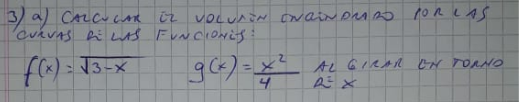 3) a) CALCULAR EL VOLUMEN ENGENDRADO POR LAS
CURVAS DE LAS FUNCIONES:
f(x) = √3-x    g(x) = x²/4    AL GIRAR EN TORNO
DE X